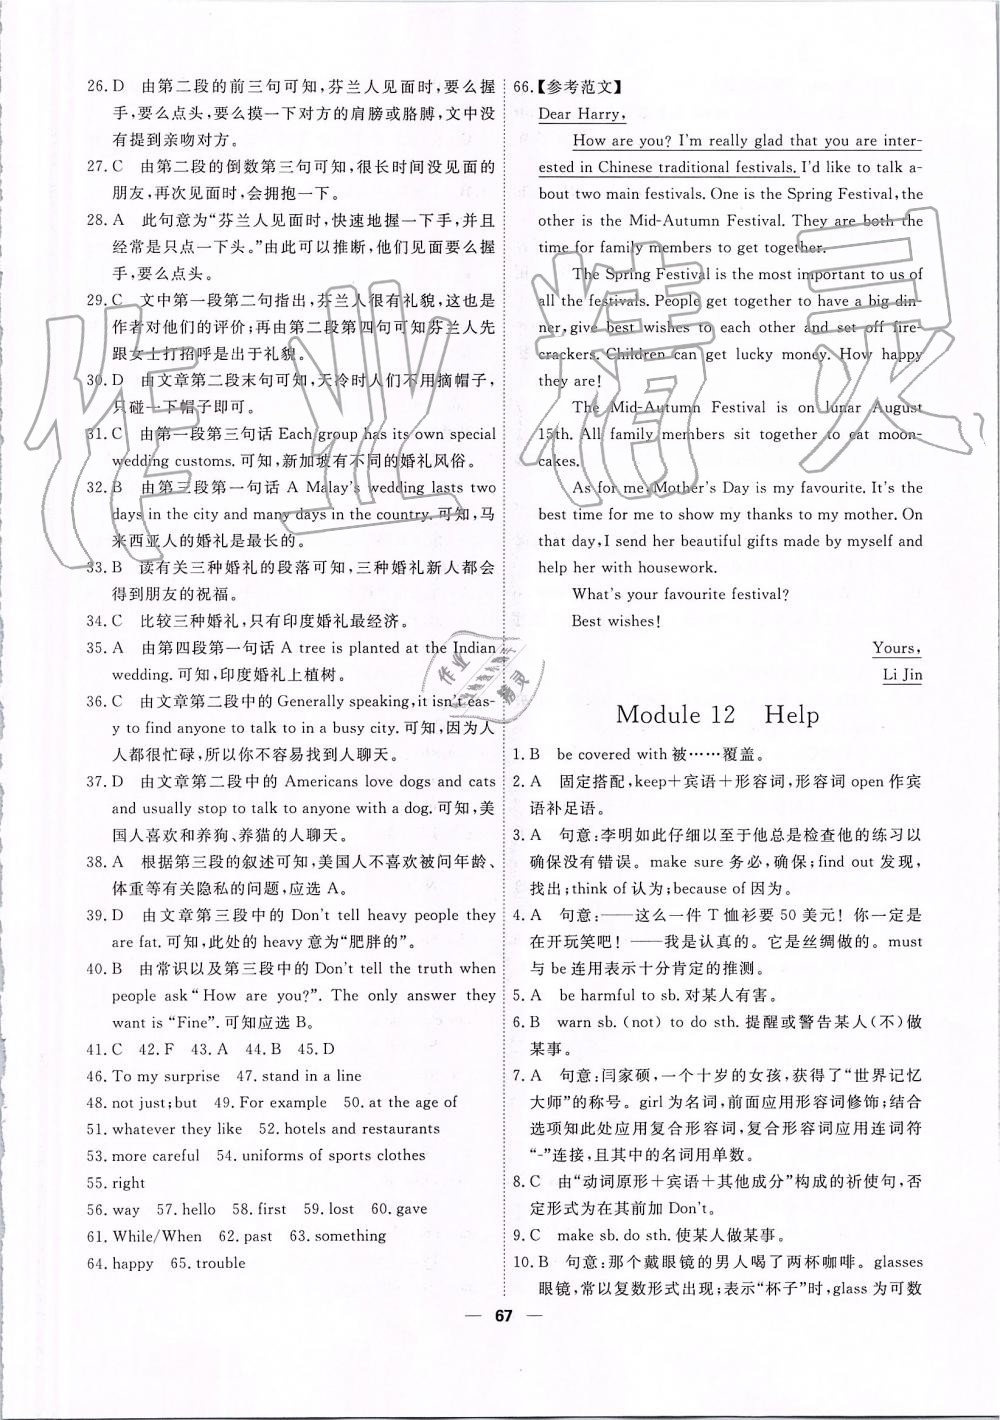 26. D 由第二段的前三句可知,芬兰人见面时,要么握
手,要么点头,要么摸一下对方的肩膀或胳膊,文中没
有提到亲吻对方。
27. C 由第二段的倒数第三句可知,很长时间没见面的
朋友,再次见面时,会拥抱一下。
28. A 此句意为“芬兰人见面时,快速地握一下手,并且
经常是只点一下头。”由此可以推断,他们见面要么握
手,要么点头。
29. C 文中第一段第二句指出,芬兰人很有礼貌,这是
作者对他们的评价;再由第二段第四句可知芬兰人先
跟女士打招呼是出于礼貌。
30. D 由文章第二段末句可知,天冷时人们不用摘帽子,
只碰一下帽子即可。
31. C 由第一段第三句话 Each group has its own special
wedding customs. 可知,新加坡有不同的婚礼风俗。
32. B 由第三段第一句话 A Malay's wedding lasts two
days in the city and many days in the country. 可知,马
来西亚人的婚礼是最长的。
33. B 读有关三种婚礼的段落可知,三种婚礼新人都会
得到朋友的祝福。
34. C 比较三种婚礼,只有印度婚礼最经济。
35. A 由第四段第一句话 A tree is planted at the Indian
wedding. 可知,印度婚礼上植树。
36. C 由文章第二段中的 Generally speaking, it isn't eas-
y to find anyone to talk to in a busy city. 可知,因为人
人都很忙碌,所以你不容易找到人聊天。
37. D 由文章第二段中的 Americans love dogs and cats
and usually stop to talk to anyone with a dog. 可知,美
国人喜欢和养狗、养猫的人聊天。
38. A 根据第三段的叙述可知,美国人不喜欢被问年龄、
体重等有关隐私的问题,应选 A。
39. D 由文章第三段中的 Don't tell heavy people they
are fat. 可知,此处的 heavy 意为“肥胖的”。
40. B 由常识以及第三段中的 Don't tell the truth when
people ask “How are you?”. The only answer they
want is “Fine”. 可知应选 B。
41. C 42. F 43. A 44. B 45. D
46. To my surprise 47. stand in a line
48. not just; but 49. For example 50. at the age of
51. whatever they like 52. hotels and restaurants
53. more careful 54. uniforms of sports clothes
55. right
56. way 57. hello 58. first 59. lost 60. gave
61. While/When 62. past 63. something
64. happy 65. trouble
66.【参考范文】
Dear Harry,
How are you? I'm really glad that you are inter-
ested in Chinese traditional festivals. I'd like to talk a-
bout two main festivals. One is the Spring Festival, the
other is the Mid-Autumn Festival. They are both the
time for family members to get together.
The Spring Festival is the most important to us of
all the festivals. People get together to have a big din-
ner, give best wishes to each other and set off fire-
crackers. Children can get lucky money. How happy
they are!
The Mid-Autumn Festival is on lunar August
15th. All family members sit together to eat moon-
cakes.
As for me, Mother's Day is my favourite. It's the
best time for me to show my thanks to my mother. On
that day, I send her beautiful gifts made by myself and
help her with housework.
What's your favourite festival?
Best wishes!
Yours,
Li Jin
Module 12 Help
1. B be covered with 被……覆盖。
2. A 固定搭配,keep+宾语+形容词,形容词 open 作宾
语补足语。
3. A 句意:李明如此仔细以至于他总是检查他的练习以
确保没有错误。make sure 务必,确保;find out 发现,
找出;think of 认为;because of 因为。
4. A 句意:——这么一件 T 恤衫要 50 美元!你一定是
在开玩笑吧!——我是认真的。它是丝绸做的。must
与 be 连用表示十分肯定的推测。
5. A be harmful to sb. 对某人有害。
6. B warn sb. (not) to do sth. 提醒或警告某人(不)做
某事。
7. A 句意:闫家硕,一个十岁的女孩,获得了“世界记忆
大师”的称号。girl 为名词,前面应用形容词修饰;结合
选项知此处应用复合形容词,复合形容词应用连词符
“-”连接,且其中的名词用单数。
8. C 由“动词原形+宾语+其他成分”构成的祈使句,否
定形式为在其前加 Don't。
9. C make sb. do sth. 使某人做某事。
10. B 句意:那个戴眼镜的男人喝了两杯咖啡。glasses
眼镜,常以复数形式出现;表示“杯子”时,glass 为可数
— 67 —
作业精灵
作业
精灵